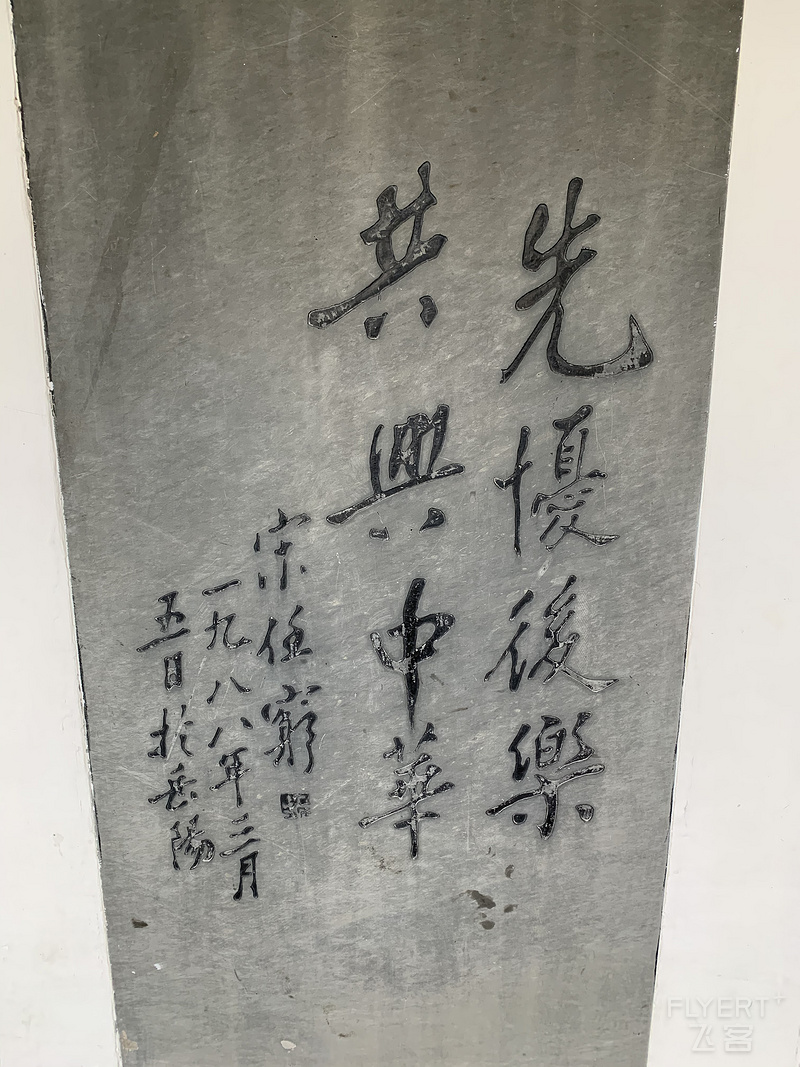 先憂後樂
共興中華
宋任窮
一九八八年三月
五日於岳陽
FLYERT+
飞客